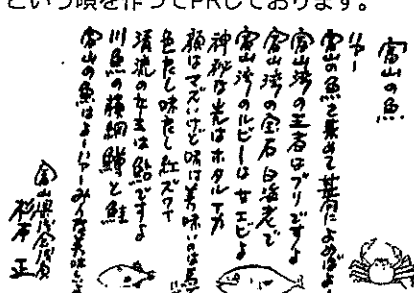 という唄を作ってPRしております。
富山の魚
富山の魚を集めて甚句によめばよー
富山湾の王者はブリですよ
富山湾の宝石白海老で
富山湾のルビーは甘エビよ
神秘な光はホタルイカ
顔はマズいけど味は美味いのは
色よし味よし紅ズワイ
清流の女王は鮎ですよ
川魚の横綱鱒と鮭
富山の魚はよー みな美味し
富山県
正